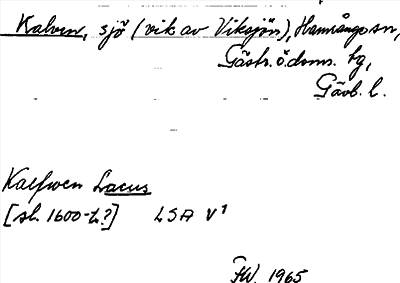 Kalven, sjö (vik av Viksjön), Hamrånge sn,
Gästr. ö. doms. tg,
Gävb. l.
Kalfwen Lacus
[sl. 1600-t.?] LSA V¹
FW. 1965